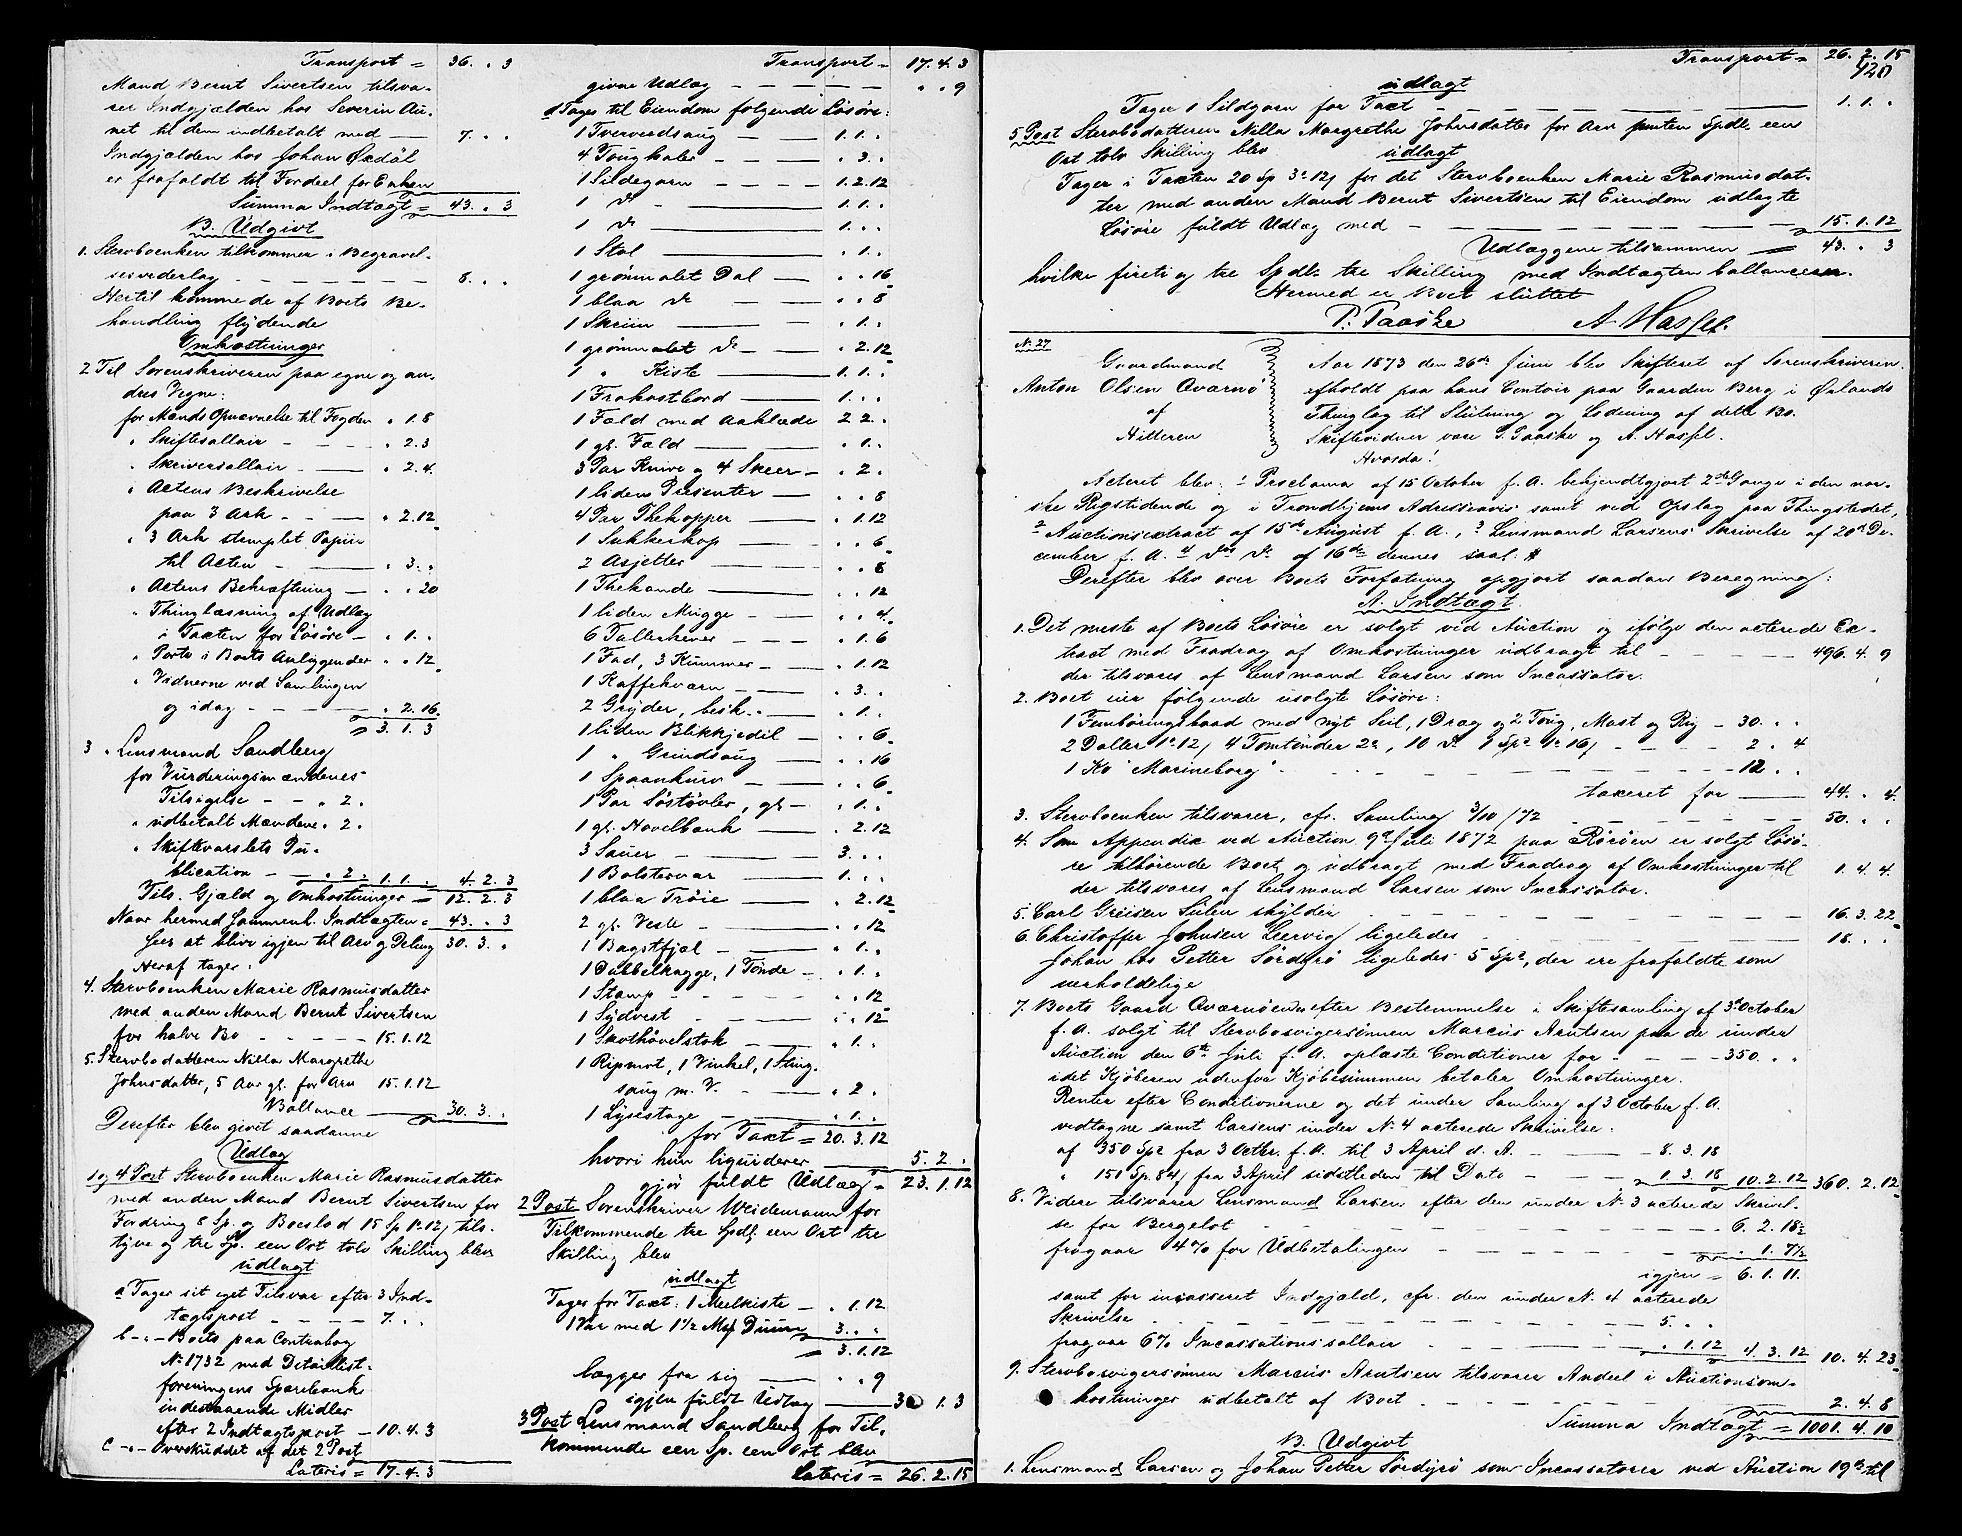 Transport = 36. „ 3
Mand Bernt Sivertsen tilsva-
rer Indgjælden hos Severin Au-
net til dem indbetalt med — 7. „ „
Indgjælden hos Johan Oxdal
er frafaldt til Fordeel for Enken
Summa Indtægt = 43. „ 3
B. Udgivt
1. Stervboenken tilkommer i Begravel-
sesvederlag — 8. „ „
Hertil komme de af Boets Be-
handling flydende
Omkostninger
2 Til Sorenskriveren paa egne og an-
dres Vegne:
for Mænds Opnævnelse til Fogden „ 1.8
„ Skiftesallair — „ 2.3
„ Skriversallair — „ 2.4.
„ Actens Beskrivelse
paa 3 Ark — „ 2.12
„ 3 Ark stemplet Papiir
til Acten — „ 3. „
„ Actens Bekræftning — „ „ 20
„ Thinglæsning af Udlæg
i Taxten for Løsøre — „ 1. „
„ Porto i Boets Anliggender „ „ 12
„ Vidnerne ved Samlingen
og idag — „ 2. 16.
3. 1. 3
3 „ Lensmand Sandberg
for Vurderingsmændenes
Tilsigelse — „ 2.
„ udbetalt Mændene „ 2.
„ Skiftevarslets Pu-
blication — „ 2. 1. 1. „ 4. 2. 3
Tils. Gjæld og Omkostninger = 12. 2. 3
Naar hermed sammenh. Indtægten = 43. „ 3
sees at blive igjen til Arv og Deling 30. 3. „
Heraf tager:
4. Stervboenken Marie Rasmusdatter
med anden Mand Bernt Sivertsen
for halve Bo — 15. 1. 12
5. Stervbodatteren Nilla Margrethe
Johnsdatter, 5 Aar gl. for Arv 15. 1. 12
Ballance — 30. 3. „
Derefter blev givet saadanne
Udlæg
1 og 4 Post Stervboenken Marie Rasmusdatter
med anden Mand Bernt Sivertsen for
Fordring 8 Sp. og Boeslod 15 Sp 1. 12/ tils.
tyve og tre Sp. een Ort tolv Skilling blev
udlagt
a Tager sit eget Tilsvar efter 3 Ind-
tægtspost — 7. „ „
b —„— Boets paa Contrabog
No 1732 med Detaillist-
foreningens Sparebank
indestaaende Midler
efter 2 Indtægtspost — 10. 4. 3
c —„— Overskuddet af det 2 Post
Lateris = 17. 4. 3
Transport = 17. 4. 3
givne Udlæg — „ „ 9
d Tager til Eiendom følgende Løsøre:
1 Tverveedsaug — 1. 1. „
4 Toughaler — „ 3. „
1 Sildegarn — 1. 2. 12
1 do — 1. 1. „
1 do — 1. „ „
1 Stol — „ 1. „
1 grønmalet Dal — „ „ 16
1 blaa do — „ „ 8
1 Skriin — „ 1. „
1 grønmalet do — „ 2. 12
1 „ Kiste — 1. 1. „
1 Frokostbord — 1. „ „
1 Fæld med Aaklæde 2 2. „
1 gl. Fæld — „ 1. „
3 Par Knive og 4 Skeer — „ 2. „
1 liden Præsenter — „ „ 8
4 Par Thekopper — „ 1. 12
1 Sukkerkop — „ „ 6
2 Asjetter — „ „ 8
1 Thekande — „ „ 12
1 liden Mugge — „ „ 4
6 Tallerkener — „ 1. 6
1 Fad, 3 Kummer — „ 1. 12
1 Kaffekværn — „ 3. „
2 Gryder, besk. — „ 1. „
1 liden Blikkjedel — „ „ 6
1 „ Grindsaug — „ „ 16
1 Spaankurv — „ „ 6
1 Par Søstøvler, gl — „ 1. „
1 gl. Høvelbænk — „ 2. 12
3 Sauer — 3. „ „
1 Bolstervar — 1. „ „
1 blaa Trøie — „ 2. 12
2 gl. Veste — „ „ 12
1 Bagstfjæl — „ 1. „
1 Dubbelkagge, 1 Tønde — „ 1. „
1 Stamp — „ „ 12
1 Sydvest — „ „ 12
1 Skothøvelstok — „ 1. „
1 Ripmot, 1 Vinkel, 1 Sting-
saug m. V. — „ 2 „
1 Lysestage — „ 1. „
for Taxt = 20. 3. 12
hvori hun liquiderer — 5. 2. „
gjør fuldt Udlæg = 23. 1. 12
2 Post Sorenskriver Weidemann for
Tilkommende tre Spdl. een Ort tre
Skilling blev
udlagt
Tager for Taxt: 1 Meelkiste — „ 1. 12
1 Var med 1½ Mrk Duun 3. „ „
3. 1. 12
lægger fra sig — „ „ 9
igjen fuldt Udlæg — 3 1. 3
3 Post Lensmand Sandberg for Til-
kommende een Sp. een Ort blev
Lateris = 26. 2. 15
Transport = 26. 2. 15
420
udlagt
Tager 1 Sildgarn for Taxt — 1. 1. „
5 Post Stervbodatteren Nilla Margrethe Johnsdatter for Arv femten Spdl. een
Ort tolv Skilling blev udlagt
Tager i Taxten 20 Sp 3. 12/ for det Stervboenken Marie Rasmusdat-
ter med anden Mand Bernt Sivertsen til Eiendom udlagte
Løsøre fuldt Udlæg med — 15. 1. 12
Udlæggene tilsammen = 43. „ 3
hvilke firetiog tre Spdl. tre Skilling med Indtægten ballancerer.
Hermed er Boet sluttet
P. Paaske A Hassel.
No 27
Gaardmand
Anton Olsen Qværnø
af
Hitteren
Aar 1873 den 26de Juni blev Skifteret af Sorenskriveren
afholdt paa hans Contoir paa Gaarden Berg i Ørlands
Thinglag til Slutning og Lodning af dette Bo.
Skiftevidner vare P. Paaske og A. Hassel.
Hvorda!
Acteret blev: 1 Proclama af 15 October f. A. bekjendtgjort 2de Gange i den nor-
ske Rigstidende og i Trondhjems Adresseavis samt ved Opslag paa Thingstedet,
2 Auctionsextract af 15de August f. A., 3 Lensmand Larsens Skrivelse af 20de De-
cember f. A. 4 Ds Do af 16de dennes saal: #
Derefter blev over Boets Forfatning opgjort saadan Beregning:
A. Indtægt.
1. Det meste af Boets Løsøre er solgt ved Auction og ifølge den acterede Ex-
tract med Fradrag af Omkostninger udbragt til — 496. 4. 9
der tilsvares af Lensmand Larsen som Incassator.
2. Boet eier følgende usolgte Løsøre:
1 Femböringsbaad med nyt Seil, 1 Drag og 2 Toug, Mast og Rig — 30. „ „
2 Daller 1. 12/ 4 Tomtønder 2, 10 do 1 Spd 4. 16/ — 2. „ 4
1 Ko "Marineborg" — 12. „ „
taxeret for — 44. „ 4.
3. Stervboenken tilsvarer, cfr. Samling 3/10/72 — 50. „ „
4. Som Appendix ved Auction 9de Juli 1872 paa Rörøen er solgt Løsø-
re tilhørende Boet og udbragt med Fradrag af Omkostninger til 1. 4. 4.
der tilsvares af Lensmand Larsen som Incassator.
5. Carl Greisen Sulen skylder — 16. 3. 22
6. Christoffer Johnsen Leervig ligeledes — 18. „ „
Johan hos Petter Sørdyrø ligeledes 5 Spd, der ere frafaldte som
uerholdelige
7. Boets Gaard Qværnøen efter Bestemmelse i Skiftesamling af 3 October
f. A. solgt til Stervbosvigersønnen Marcus Arntsen paa de under
Auction den 6te Juli f. A. oplæste Conditioner for — 350. „ „
idet Kjøberen udenfor Kjøbesummen betaler Omkostninger.
Renter efter Conditionerne og det under Samling af 3 October f. A.
vedtagne samt Larsens under No 4 acterede Skrivelse:
af 350 Spd fra 3 Octbr. f. A. til 3 April d. A. — 8. 3. 18
„ 151 Sp. 84/ fra 3 April sidstleden til Dato — 1. 3. 18 10. 2. 12 360. 2. 12
8. Videre tilsvarer Lensmand Larsen efter den under No 3 acterede Skrivel-
se for Bergelot — 6. 2. 18½
fragaar 4% for Udbetalingen — „ 1. 7½
igjen = 6. 1. 11.
samt for incasseret Indgjæld, cfr. den under No. 4 acterede
Skrivelse — 5. „ „
fragaar 6% Incassationssallair — „ 1. 12 4. 3. 12 10. 4. 23
9. Stervbosvigersønnen Marcus Arntsen tilsvarer Andeel i Auctionsom-
kostninger udbetalt af Boet — 2. 4. 8
Summa Indtægt = 1001. 4. 10
B. Udgivt
1. Lensmand Larsen og Johan Petter Sørdyrø som Incassatorer ved Auction 19de til